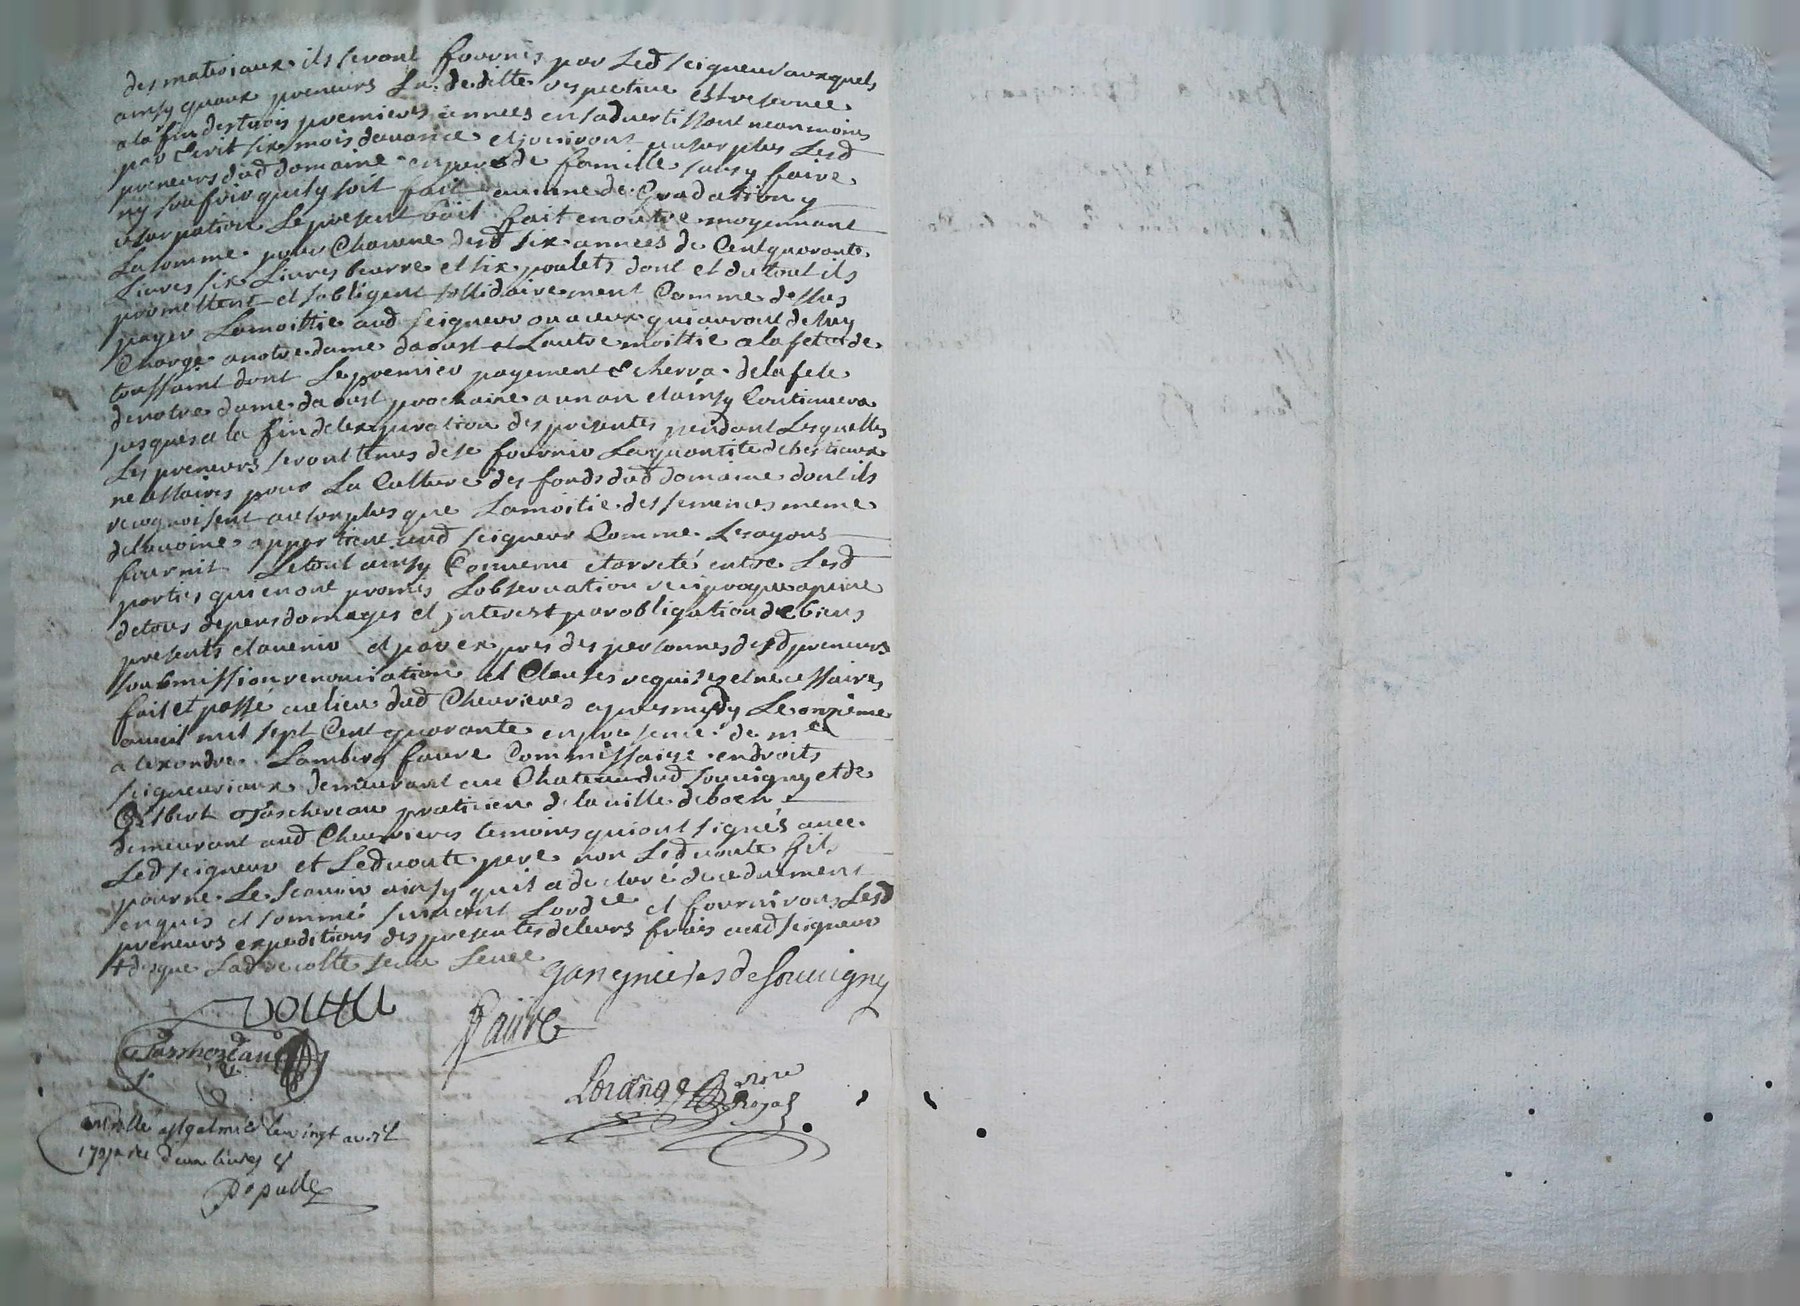 des materiaux ils seront fournis par Led seigneur auxquels
ainsy quaux preneurs La deditte respective est reservee
a la fin des trois premieres années en sadvertissant neanmoins
par Ecrit six mois davance et jouiront au surplus Lesd
preneurs dud domaine en pere de famille sans y faire
ny souffrir quil y soit fait aucune degradation y
usurpation Le present bail fait en outre moyennant
La somme pour Chacune desd six années de Cent quarante
Livres six Livres beurre et six poulets dont et du tout ils
promettent et sobligent sollidairement Comme dessus
payer Lamoittie aud seigneur ou a ceux qui auront de luy
Charge a notre dame daoust et Lautre moittie a la fete de
toussaint dont Le premier payement Echerra de la fete
de notre dame daoust prochaine a un an et ainsy Continuera
jusques a la fin de lexpiration des presentes pendant Lesquelles
Les preneurs seront tenus de se fournir La quantité de bestiaux
necessaires pour La Culture des fonds dud domaine dont ils
recognoissent au surplus que Lamoitie des semences meme
de lavoine appartient aud seigneur Comme Lesayant
fournit Le tout ainsy Convenu et arreté entre Lesd
parties qui en ont promis Lobservation reciproque a peine
de tous depens domages et interest par obligation de biens
presents et avenir et par expres des personnes desd preneurs
soubmission renonciation et Clauses requises et necessaires
fait et passé au lieu dud Chevrieres apres midy Le onzieme
avril mil sept Cent quarante en presence de me
alexandre Lambert faure Commissaire en droits
seigneuriaux demeurant au Chateau dud souvigny et de
Gilbert Taschereau praticien de la ville de boen
demeurant aud Chevrieres temoins qui ont signés avec
Led seigneur et Led voute pere non Led voute fils
pour ne Le scavoir ainsy quil a declaré de ce dument
enquis et sommé suivant Lordce et fourniront Lesd
preneurs expeditions des presentes de leurs frais aud seigneur
+ des que Lad recolte sera Levée
gangnieres de Souvigny
voute
Faure
Taschereau
Lorange nore Royal
controllé a st galmier le vingt avril
deux livres
Populle